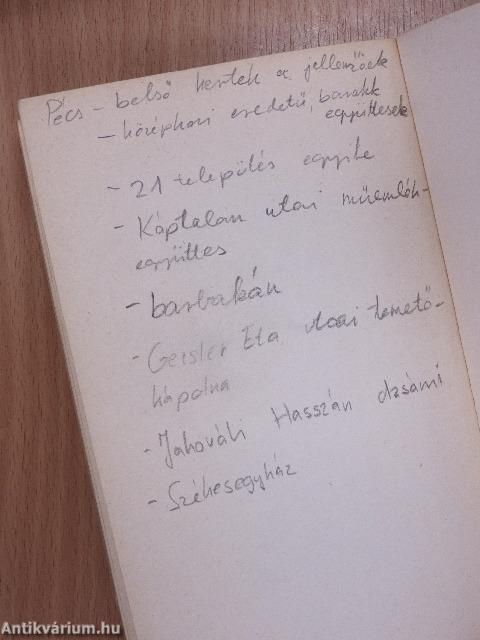 Pécs - belső kertek a jellemzőek
- középkori eredetű, barokk
együttesek
- 21 település együtte
- Káptalan utcai műemlék-
együttes
- barbakán
- Geisler Eta utcai temető-
kápolna
- Jakováli Hasszán dzsámi
- Székesegyház
Antikvárium.hu